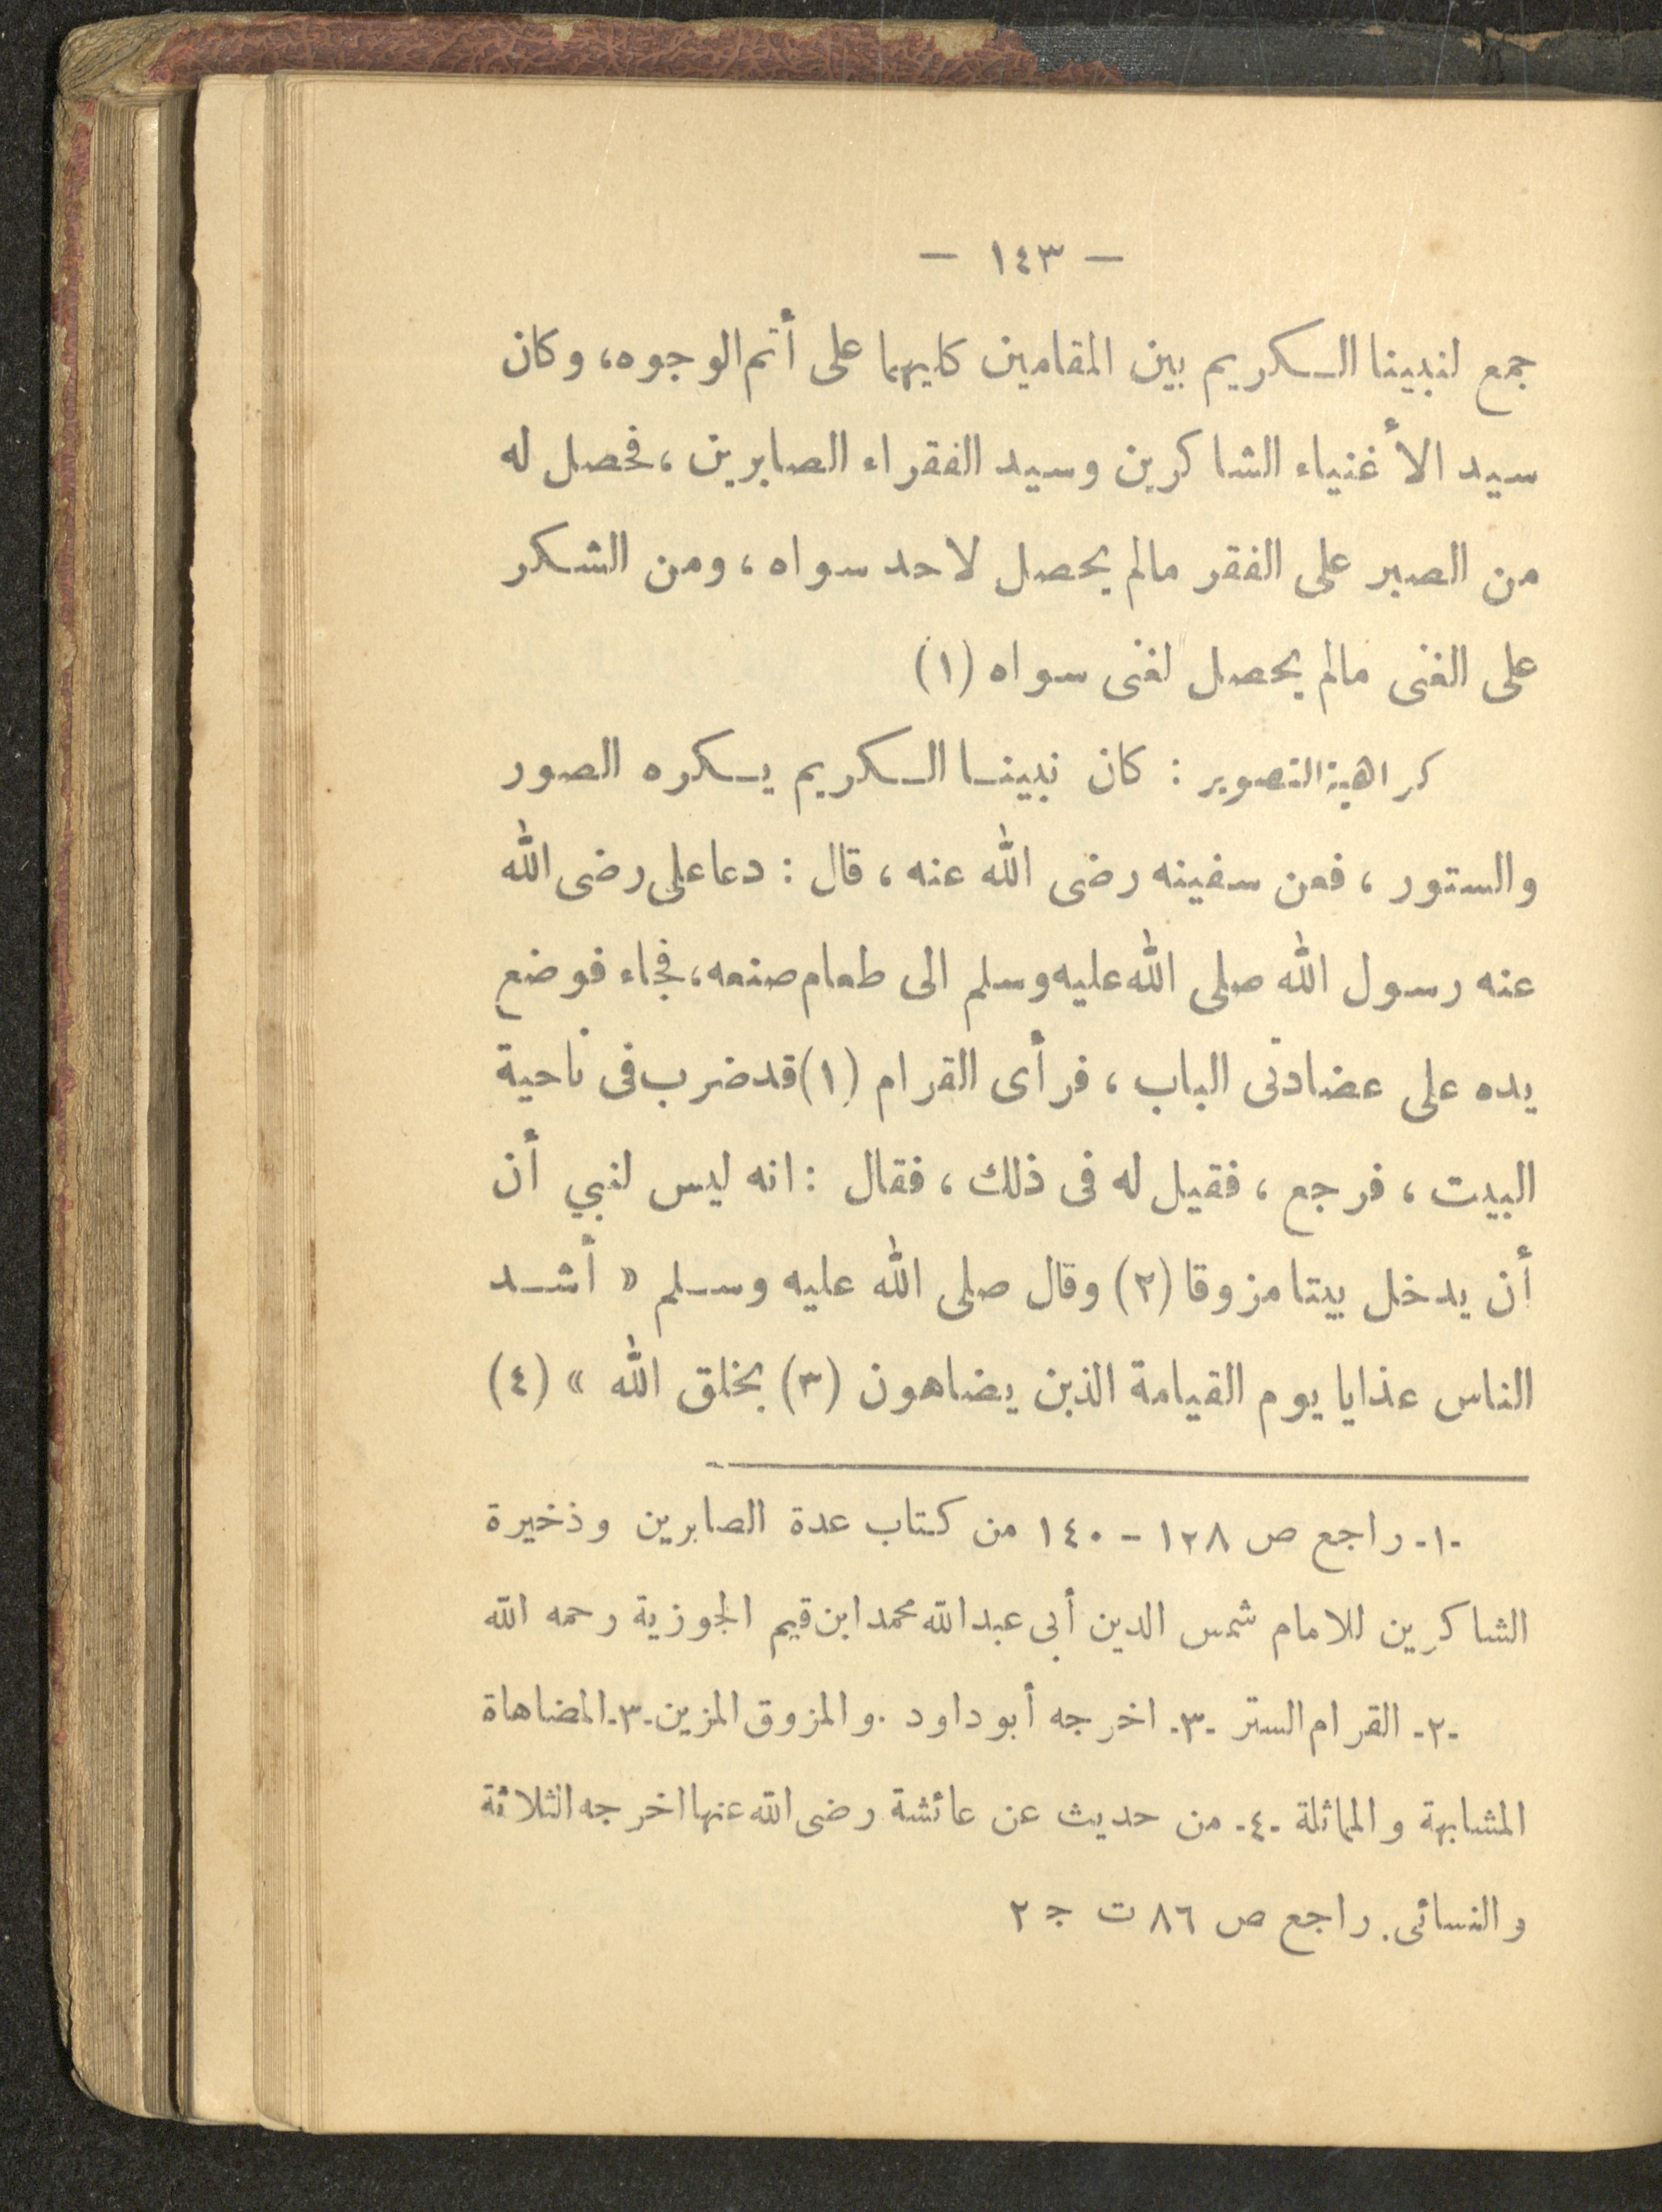 — ١٤٣ —
جمع لنبينا الكريم بين المقامين كليهما على أتم الوجوه، وكان
سيد الأغنياء الشاكرين وسيد الفقراء الصابرين، فحصل له
من الصبر على الفقر مالم يحصل لاحد سواه، ومن الشكر
على الغنى مالم يحصل لغنى سواه (١)
كراهية التصوير : كان نبينا الكريم يكره الصور
والستور، فعن سفينه رضى الله عنه، قال : دعا على رضى الله
عنه رسول الله صلى الله عليه وسلم الى طعام صنعه، فجاء فوضع
يده على عضادتى الباب، فرأى القرام (١) قد ضرب فى ناحية
البيت، فرجع، فقيل له فى ذلك، فقال : انه ليس لنبي أن
أن يدخل بيتا مزوقا (٢) وقال صلى الله عليه وسلم « أشد
الناس عذابا يوم القيامة الذين يضاهون (٣) بخلق الله » (٤)
-١- راجع ص ١٢٨ - ١٤٠ من كتاب عدة الصابرين وذخيرة
الشاكرين للامام شمس الدين أبى عبد الله محمد ابن قيم الجوزية رحمه الله
-٢- القرام الستر -٣- اخرجه أبو داود . والمزوق المزين -٣- المضاهاة
المشابهة والمماثلة -٤- من حديث عن عائشة رضى الله عنها اخرجه الثلاثة
والنسائى. راجع ص ٨٦ ت ج ٢